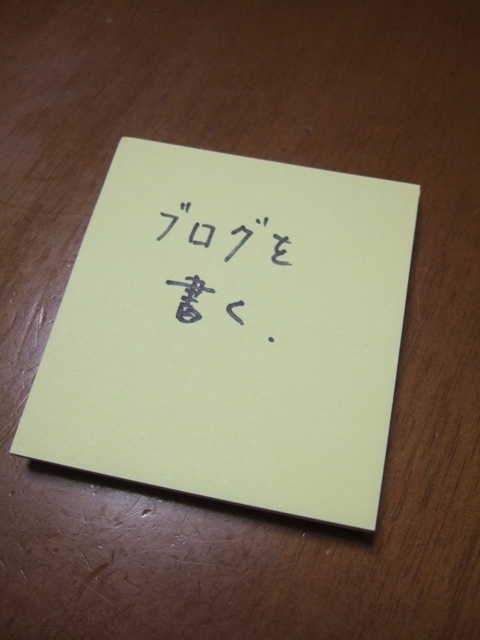 ブログを
書く.